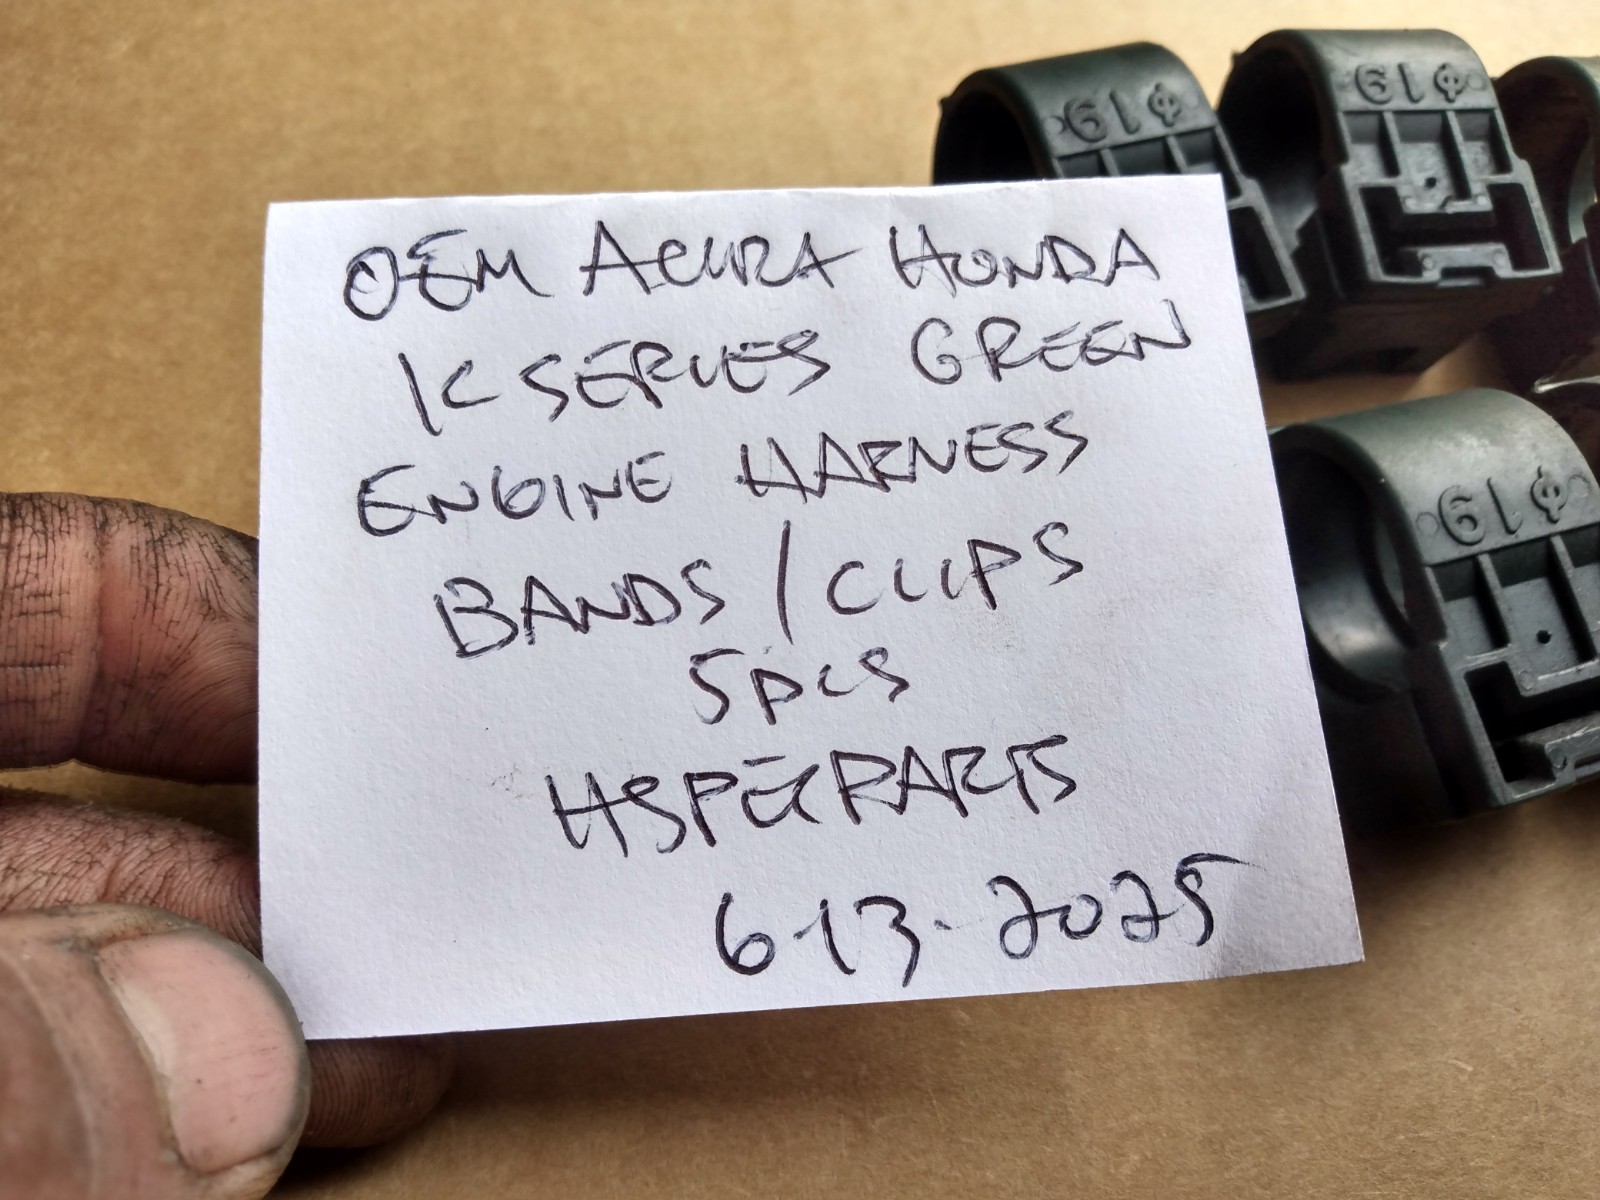 OEM ACURA HONDA
K SERIES GREEN
ENGINE HARNESS
BANDS / CLIPS
5pcs
HSPEXPARTS
6-13-2025
ϕ19
ϕ19
ϕ19